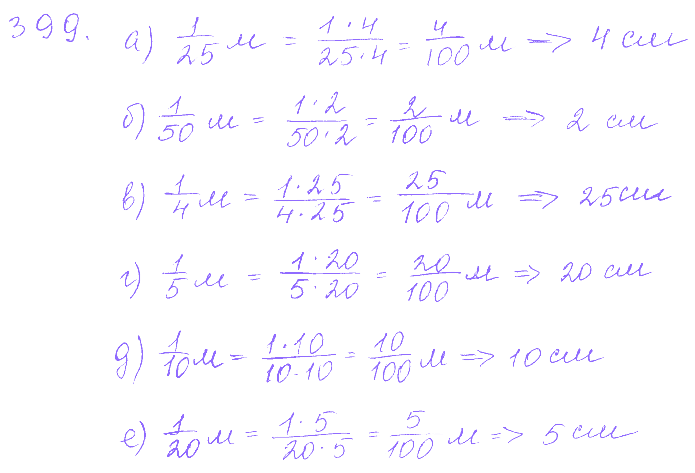 399. а) 1/25 м = 1·4/25·4 = 4/100 м => 4 см
б) 1/50 м = 1·2/50·2 = 2/100 м => 2 см
в) 1/4 м = 1·25/4·25 = 25/100 м => 25 см
г) 1/5 м = 1·20/5·20 = 20/100 м => 20 см
д) 1/10 м = 1·10/10·10 = 10/100 м => 10 см
е) 1/20 м = 1·5/20·5 = 5/100 м => 5 см